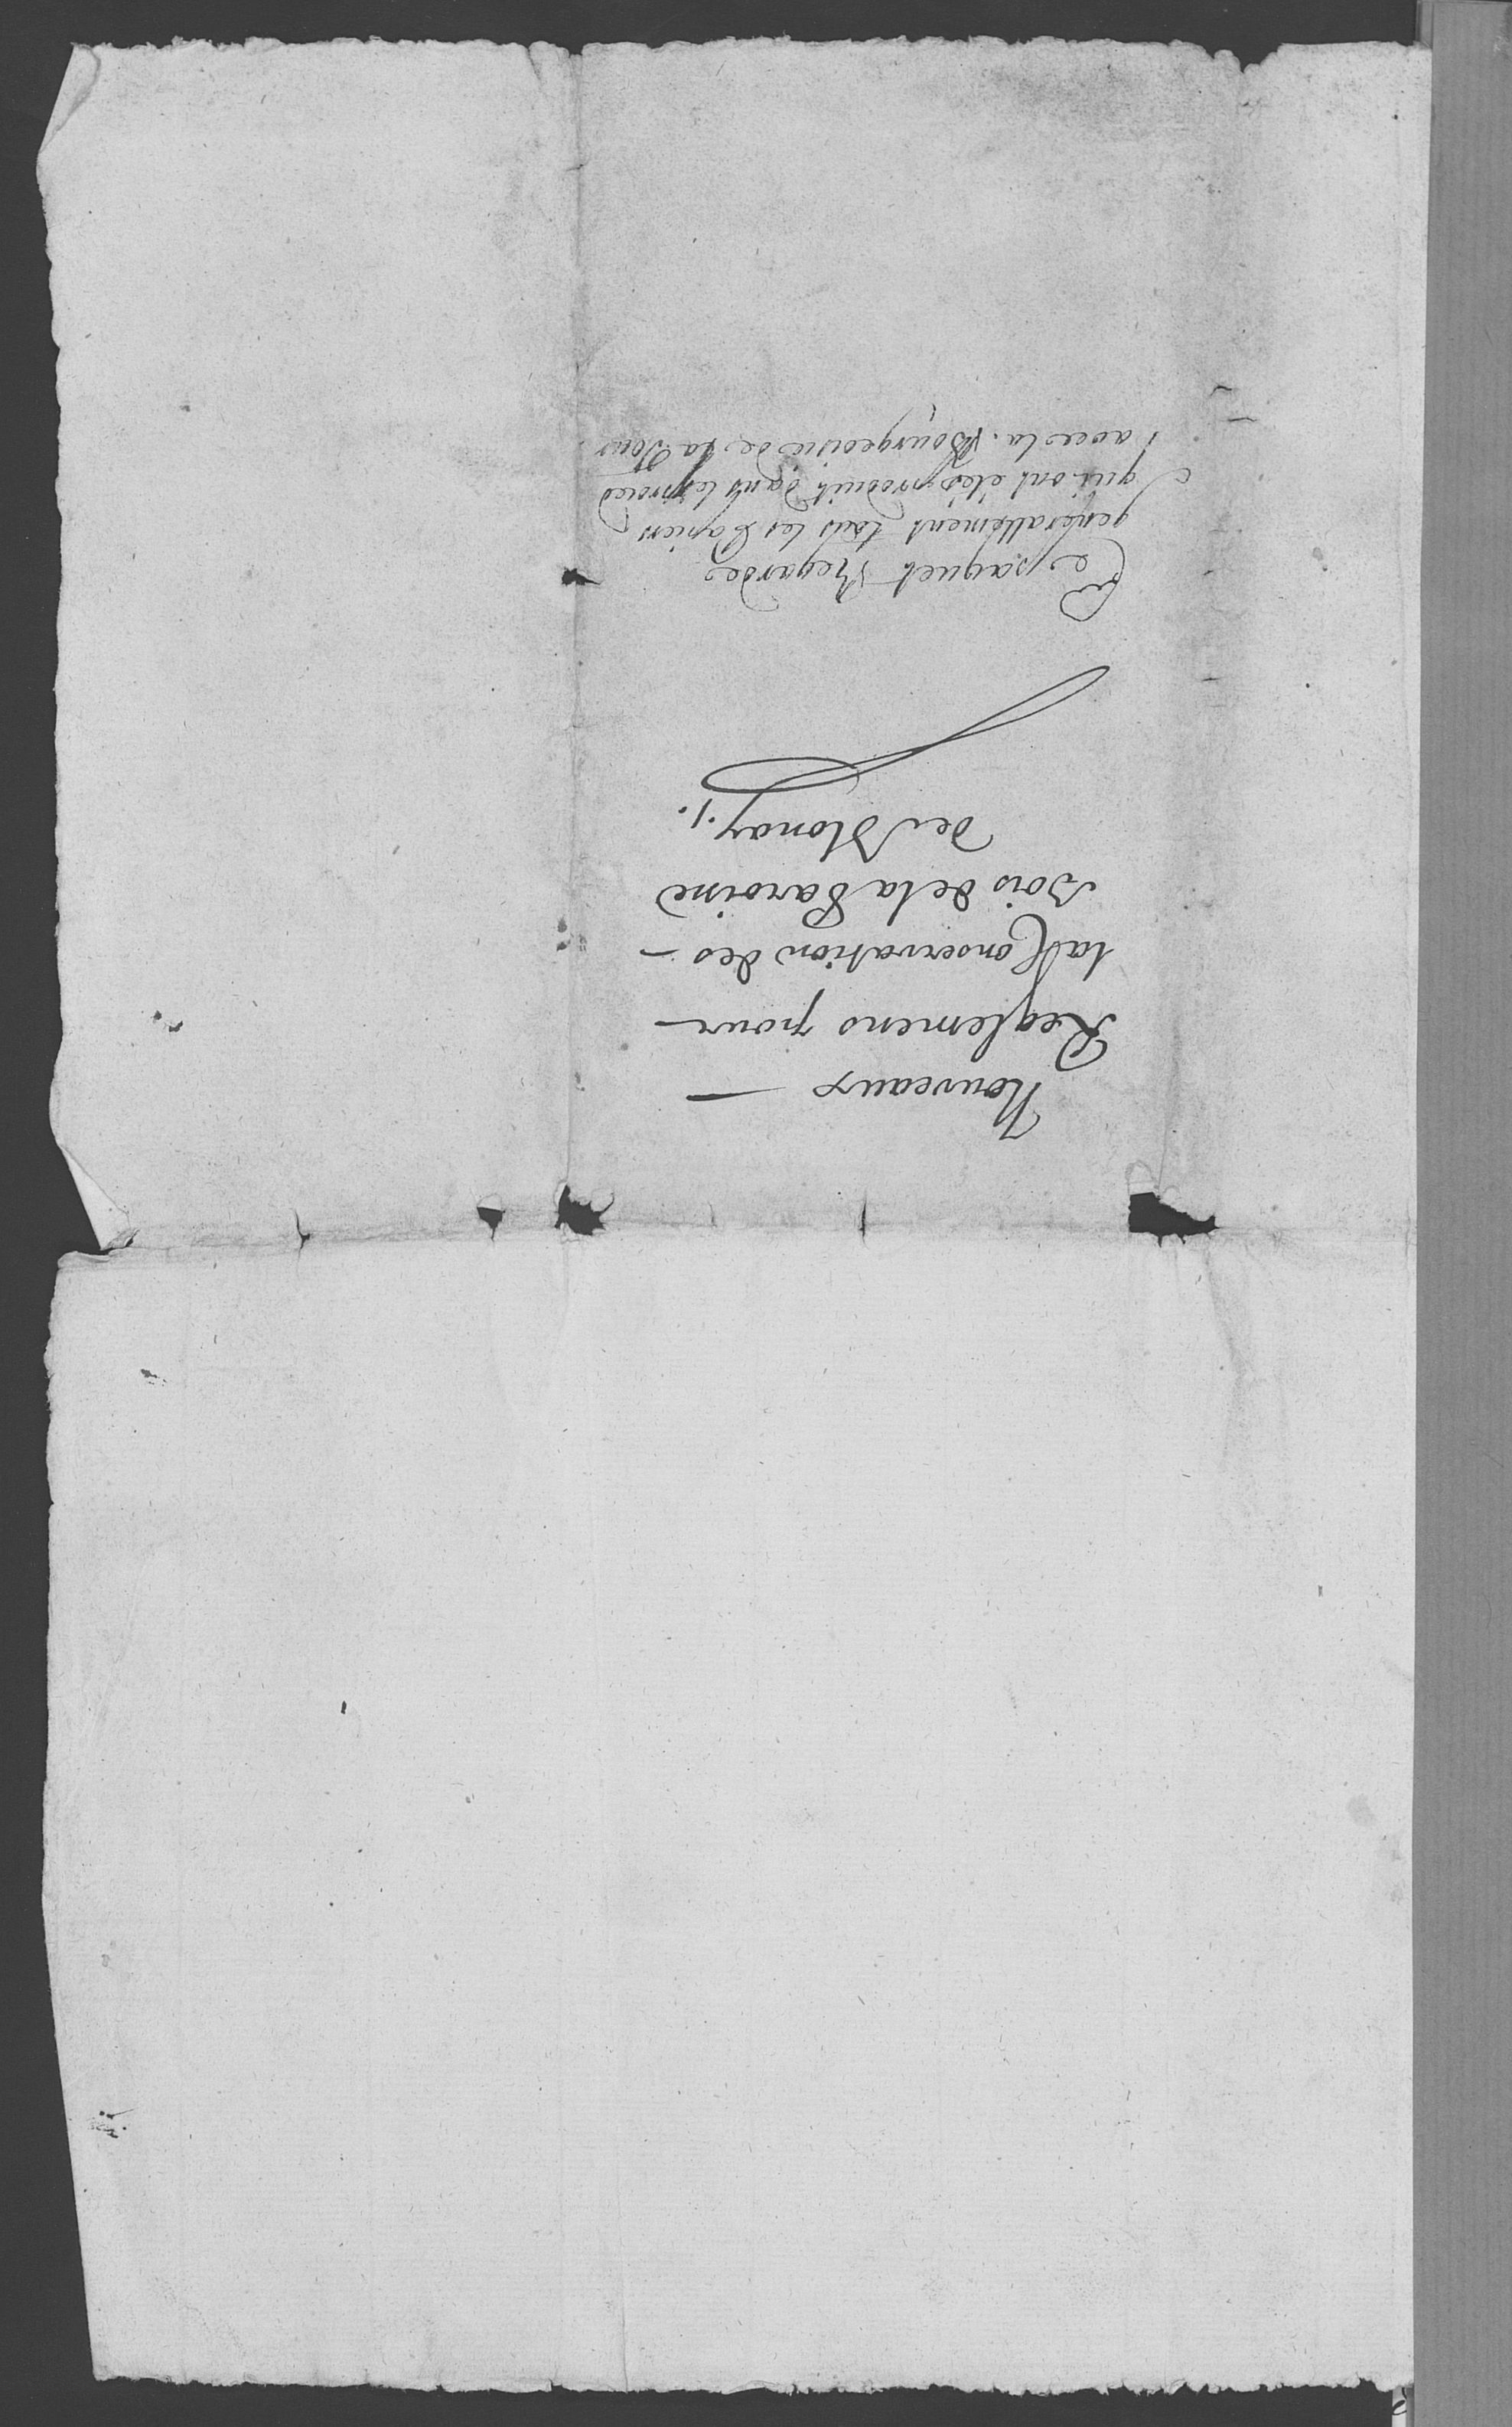 Nouveaux —
Reglemens pour —
la Conservation des —
Bois de la Paroisse
de Blonay ./.
Ce paquet Regarde
generallement tous les Papiers
qui ont étés produit dans le proced
avec la Bourgeoisie de la Tour